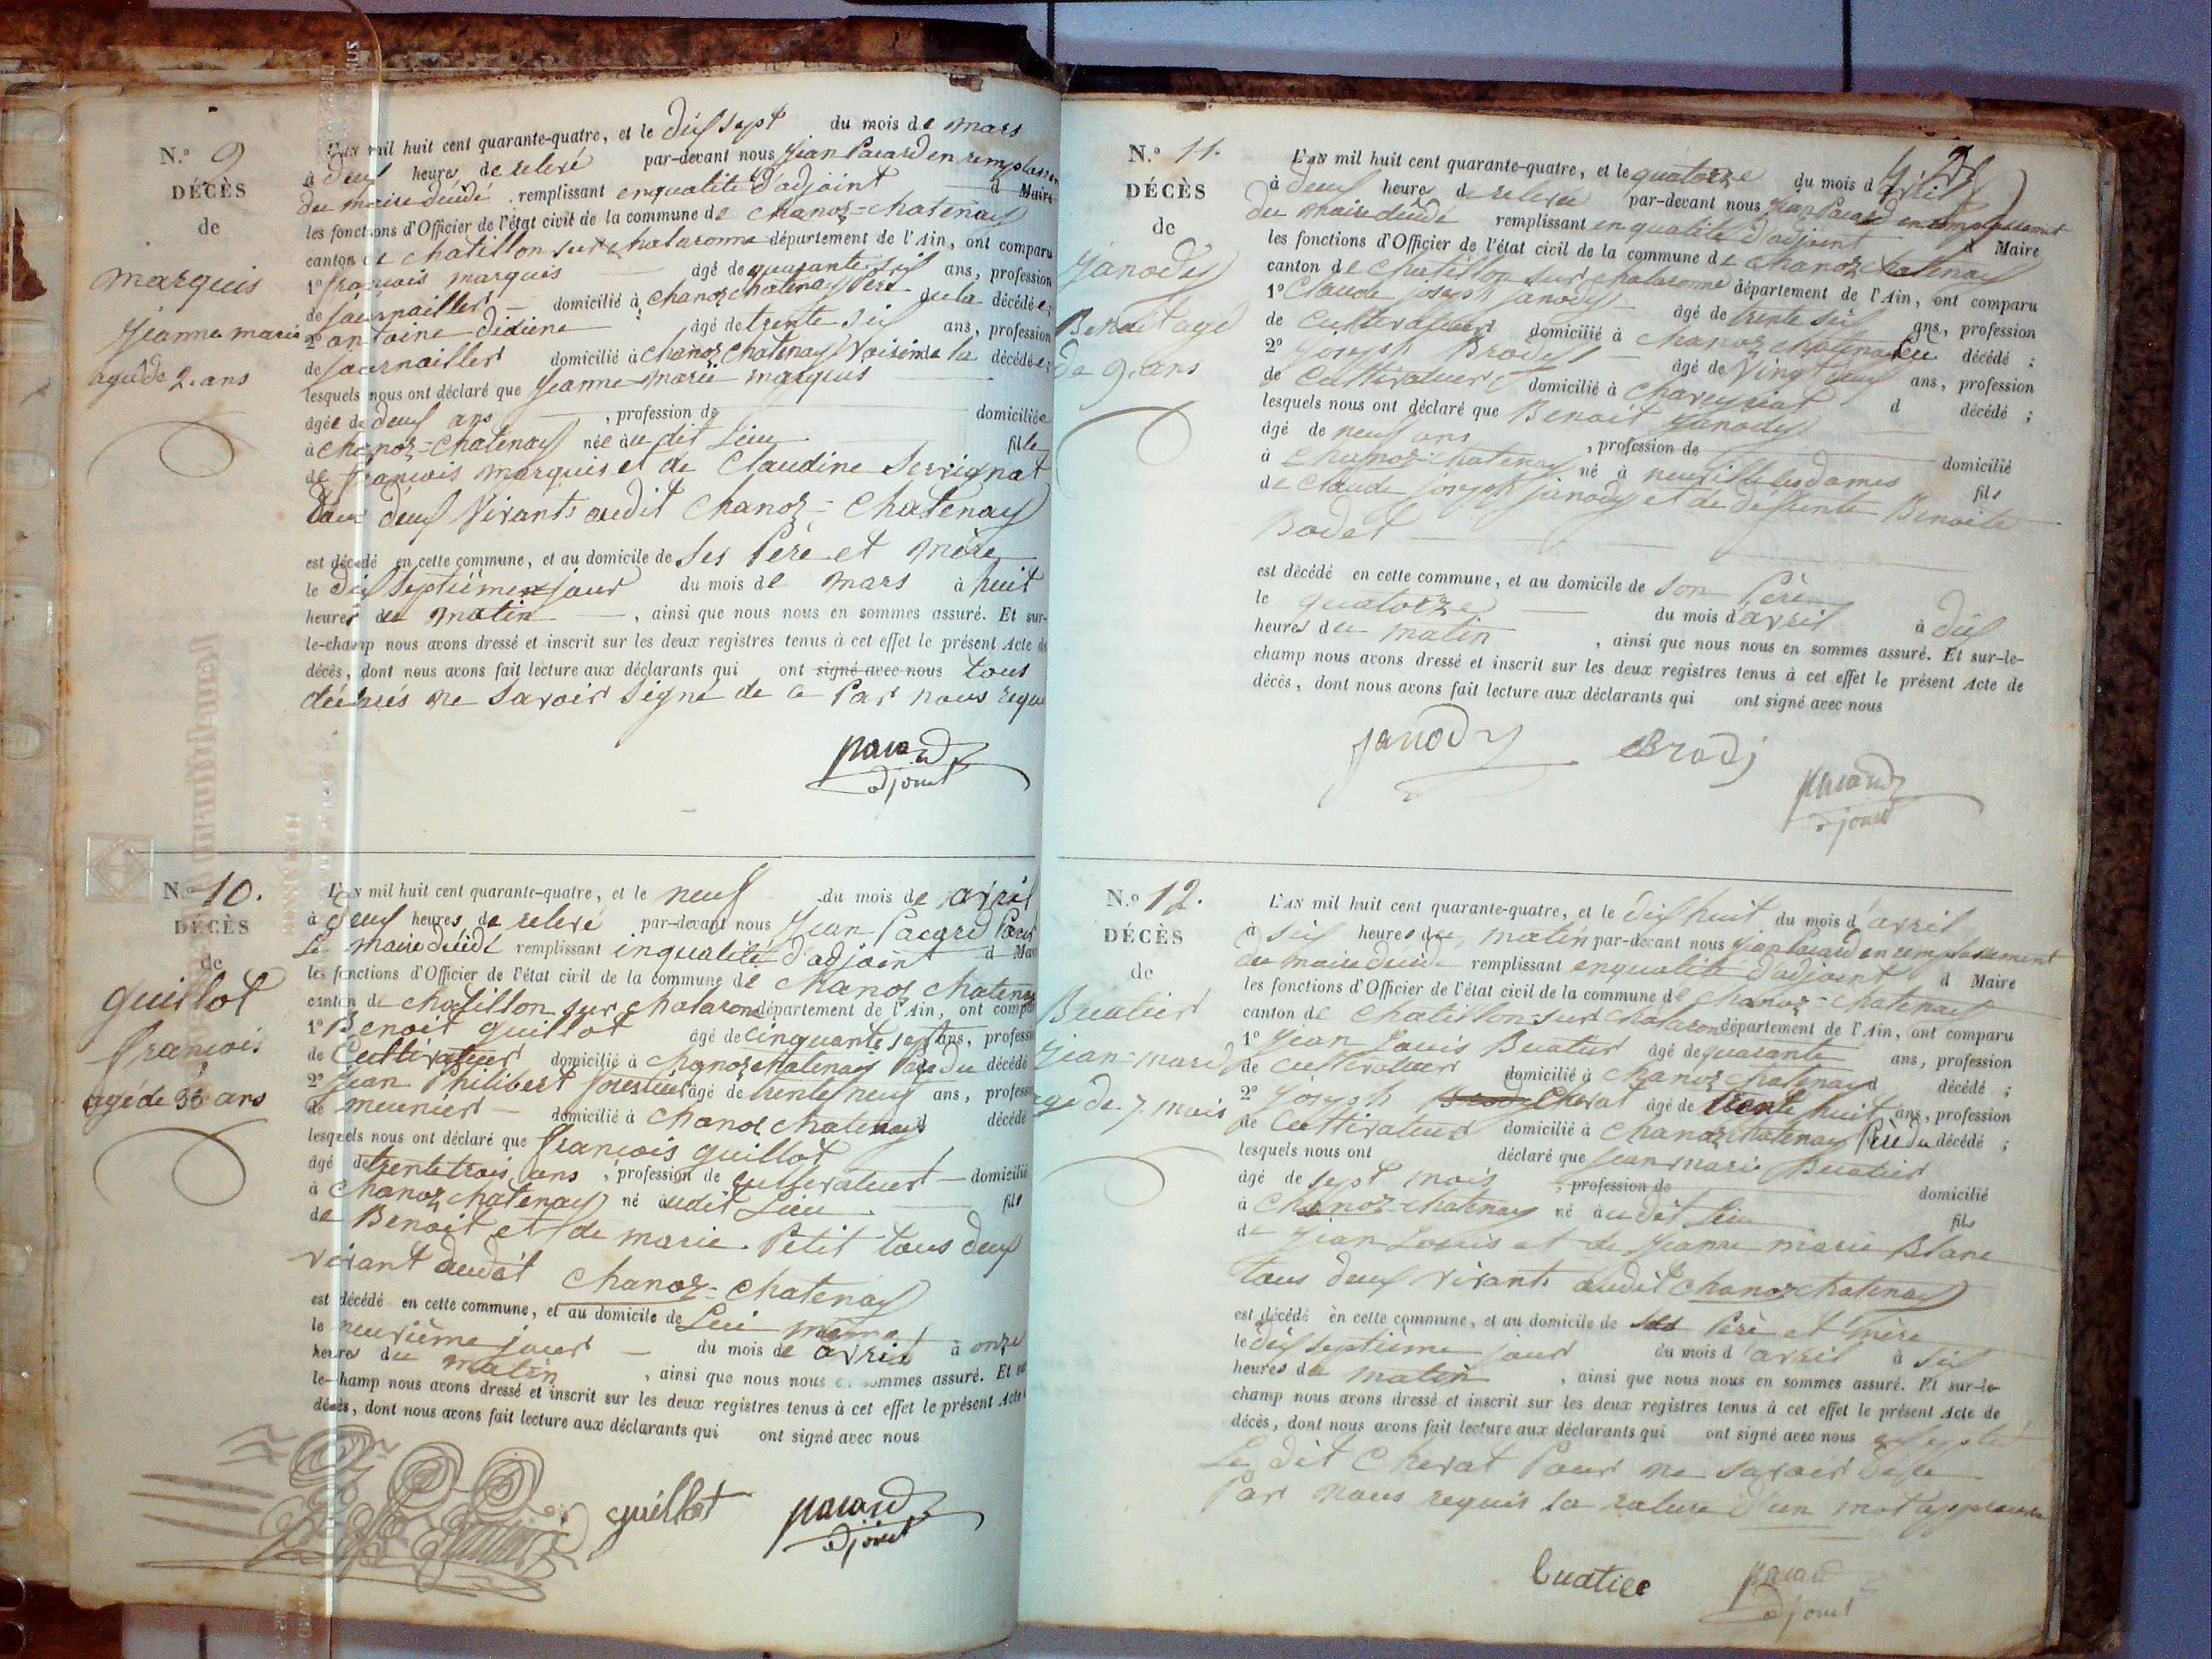 N.° 9
DÉCÈS
de
marquis
jeanne marie
agée de 2. ans
L'AN mil huit cent quarante-quatre, et le dix sept du mois de mars
à deux heures de relevé par-devant nous jean Pacard en remplassem
du maire décédé remplissant en qualité d'adjoint d Maire
les fonctions d'Officier de l'état civil de la commune de chanoz-chatenay
canton de chatillon sur chalaronne département de l'Ain, ont comparu
1° françois marquis âgé de quarante six ans, profession
de journaillier domicilié à chanoz chatenay Père de la décédée;
2° antoine didiene âgé de trente six ans, profession
de journaillier domicilié à chanoz chatenay Voisin de la décédée;
lesquels nous ont déclaré que jeanne marie marquis
âgée de deux ans , profession de domiciliée
à chanoz-chatenay née au dit Lieu fille
de françois marquis et de Claudine Servignat
tous deux Vivants audit Chanoz-Chatenay
est décédé en cette commune, et au domicile de Ses Père et mère
le dix septième jour du mois de mars à huit
heures du matin , ainsi que nous nous en sommes assuré. Et sur-
le-champ nous avons dressé et inscrit sur les deux registres tenus à cet effet le présent Acte de
décès, dont nous avons fait lecture aux déclarants qui ont signé avec nous tous
déclarés ne Savoir Signé de ce Par nous requi
pacard
adjoint
N.° 10.
DÉCÈS
de
guillot
françois
agé de 33 ans
L'AN mil huit cent quarante-quatre, et le neuf du mois de avril
à deux heures de relevé par-devant nous jean Pacard Pour
Le maire décédé remplissant en qualité d'adjoint d Maire
les fonctions d'Officier de l'état civil de la commune de chanoz chatenay
canton de chatillon sur chalaronne département de l'Ain, ont comparu
1° Benoit guillot âgé de cinquante sept ans, profession
de Cultivateur domicilié à chanoz chatenay Père du décédé
2° jean Philibert foresteur âgé de trente neuf ans, profession
de meunier domicilié à chanoz chatenay d décédé
lesquels nous ont déclaré que françois guillot
âgé de trente trois ans , profession de cultivateur domicilié
à chanoz chatenay né audit Lieu fils
de Benoit et de marie Petit tous deux
vivant audit chanoz-chatenay
est décédé en cette commune, et au domicile de Lui même
le neuvième jour du mois de avril à onze
heures du matin , ainsi que nous nous en sommes assuré. Et sur
le-champ nous avons dressé et inscrit sur les deux registres tenus à cet effet le présent Acte
décès, dont nous avons fait lecture aux déclarants qui ont signé avec nous
guillot pacard
adjoint
N.° 11.
DÉCÈS
de
janody
Benoit agé
de 9. ans
L'AN mil huit cent quarante-quatre, et le quatorze du mois d'avril
à deux heures de relevée par-devant nous jean Pacard en remplassement
du maire décédé remplissant en qualité d'adjoint d Maire
les fonctions d'Officier de l'état civil de la commune de chanoz chatenay
canton de chatillon sur chalaronne département de l'Ain, ont comparu
1° Claude joseph janody âgé de trente six ans, profession
de cultivateur domicilié à chanoz chatenay décédé ;
2° joseph Brody âgé de Vingt deux ans, profession
de Cultivateur domicilié à chaveyriat d décédé ;
lesquels nous ont déclaré que Benoit janody
âgé de neuf ans , profession de domicilié
à chanoz-chatenay né à neuville les dames fils
de Claude joseph janody et de deffunte Benoite
Bodet
est décédé en cette commune, et au domicile de son Père
le quatorze du mois d'avril à dix
heures du matin , ainsi que nous nous en sommes assuré. Et sur-le-
champ nous avons dressé et inscrit sur les deux registres tenus à cet effet le présent Acte de
décès, dont nous avons fait lecture aux déclarants qui ont signé avec nous
janody Brody
pacard
adjoint
N.° 12.
DÉCÈS
de
Buatier
jean-marie
agé de 7. mois
L'AN mil huit cent quarante-quatre, et le dix huit du mois d'avril
à six heures du matin par-devant nous jean Pacard en remplassement
du maire décédé remplissant en qualité d'adjoint d Maire
les fonctions d'Officier de l'état civil de la commune de chanoz-chatenay
canton de chatillon-sur chalaronne département de l'Ain, ont comparu
1° jean Louis Buatier âgé de quarante ans, profession
de cultivateur domicilié à chanoz chatenay d décédé ;
2° joseph Cherat âgé de trente huit ans, profession
de Cultivateur domicilié à chanoz chatenay Père du décédé ;
lesquels nous ont déclaré que jean marie Buatier
âgé de sept mois , profession de domicilié
à chanoz-chatenay né audit Lieu fils
de jean Louis et de jeanne marie Blanc
tous deux vivants audit chanoz chatenay
est décédé en cette commune, et au domicile de ses Père et mère
le dix septième jour du mois d'avril à six
heures du matin , ainsi que nous nous en sommes assuré. Et sur-le-
champ nous avons dressé et inscrit sur les deux registres tenus à cet effet le présent Acte de
décès, dont nous avons fait lecture aux déclarants qui ont signé avec nous excepté
Le dit Cherat Pour ne savoir de ce
Par nous requis la rature d'un mot approuvé
buatier pacard
adjoint